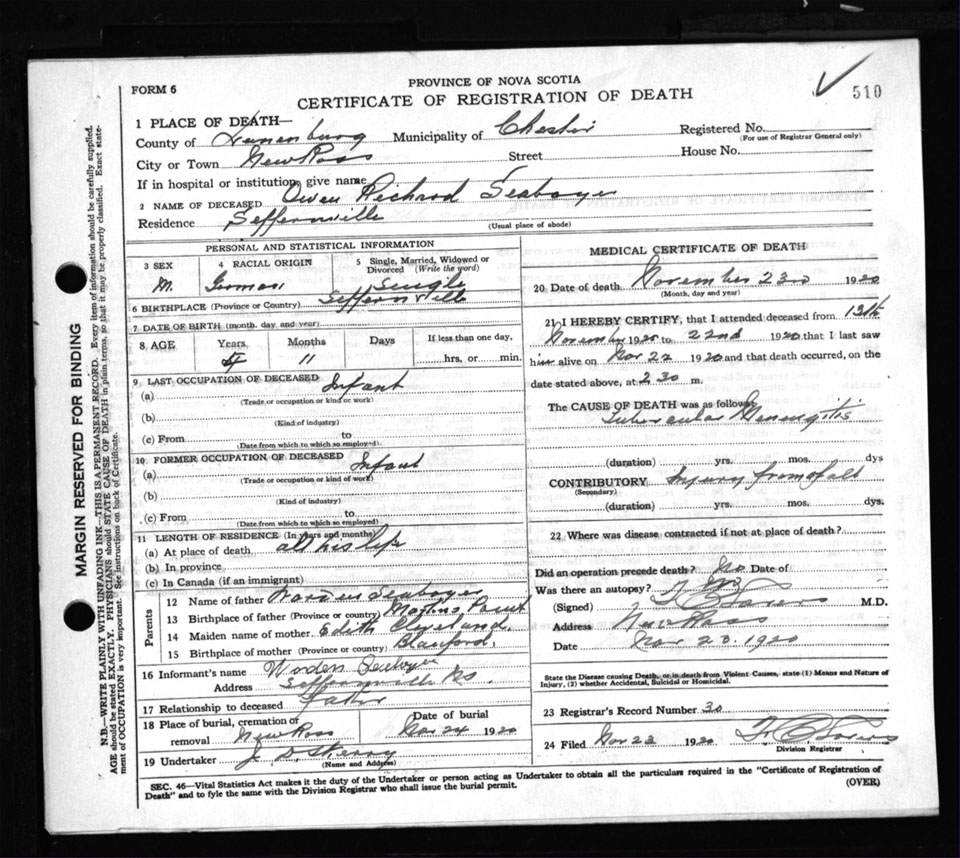 PROVINCE OF NOVA SCOTIA
FORM 6
CERTIFICATE OF REGISTRATION OF DEATH
510
1 PLACE OF DEATH—
County of Lunenburg Municipality of Chester Registered No.
(For use of Registrar General only)
City or Town New Ross Street House No.
If in hospital or institution, give name
2 NAME OF DECEASED Owen Richard Seaboyer
Residence Seffernville
(Usual place of abode)
PERSONAL AND STATISTICAL INFORMATION
3 SEX 4 RACIAL ORIGIN 5 Single, Married, Widowed or Divorced (Write the word)
M. German Single
6 BIRTHPLACE (Province or Country) Seffernville
7 DATE OF BIRTH (month, day and year)
8 AGE Years Months Days If less than one day,
11 hrs, or min.
9 LAST OCCUPATION OF DECEASED
(a) Infant
(Trade or occupation or kind or work)
(b)
(Kind of industry)
(c) From to
(Date from which to which so employed)
10 FORMER OCCUPATION OF DECEASED
(a) Infant
(Trade or occupation or kind of work)
(b)
(Kind of industry)
(c) From to
(Date from which to which so employed)
11 LENGTH OF RESIDENCE (In years and months)
(a) At place of death all his life
(b) In province
(c) In Canada (if an immigrant)
Parents
12 Name of father Seaboyer
13 Birthplace of father (Province or country) Martins Point
14 Maiden name of mother Edith Cleveland,
15 Birthplace of mother (Province or country) Blanford,
16 Informant's name Worden Seaboyer
Address Seffernville NS.
17 Relationship to deceased Father
18 Place of burial, cremation or removal New Ross Date of burial Nov 24 1920
19 Undertaker J. D. Sherry
(Name and Address)
MEDICAL CERTIFICATE OF DEATH
20 Date of death November 23rd 1920
(Month, day and year)
21 I HEREBY CERTIFY, that I attended deceased from 13th
November 1920 to 22nd 1920 that I last saw
him alive on Nov 22 1920 and that death occurred, on the
date stated above, at 2 30 m.
The CAUSE OF DEATH was as follows:
Tubercular Meningitis
(duration) yrs. mos. dys
CONTRIBUTORY Injury from fall
(Secondary)
(duration) yrs. mos. dys.
22 Where was disease contracted if not at place of death?
Did an operation precede death? No Date of
Was there an autopsy? No
(Signed) M.D.
Address New Ross
Date Nov 23. 1920
State the Disease causing Death, or in death from Violent Causes, state (1) Means and Nature of Injury, (2) whether Accidental, Suicidal or Homicidal.
23 Registrar's Record Number 30
24 Filed Nov 23 1920
Division Registrar
SEC. 46—Vital Statistics Act makes it the duty of the Undertaker or person acting as Undertaker to obtain all the particulars required in the "Certificate of Registration of
Death" and to fyle the same with the Division Registrar who shall issue the burial permit. (OVER)
MARGIN RESERVED FOR BINDING
N.B.—WRITE PLAINLY WITH UNFADING INK—THIS IS A PERMANENT RECORD. Every item of information should be carefully supplied.
AGE should be stated EXACTLY. PHYSICIANS should STATE CAUSE OF DEATH in plain terms, so that it may be properly classified. Exact state-
ment of OCCUPATION is very important. See instructions on back of Certificate.